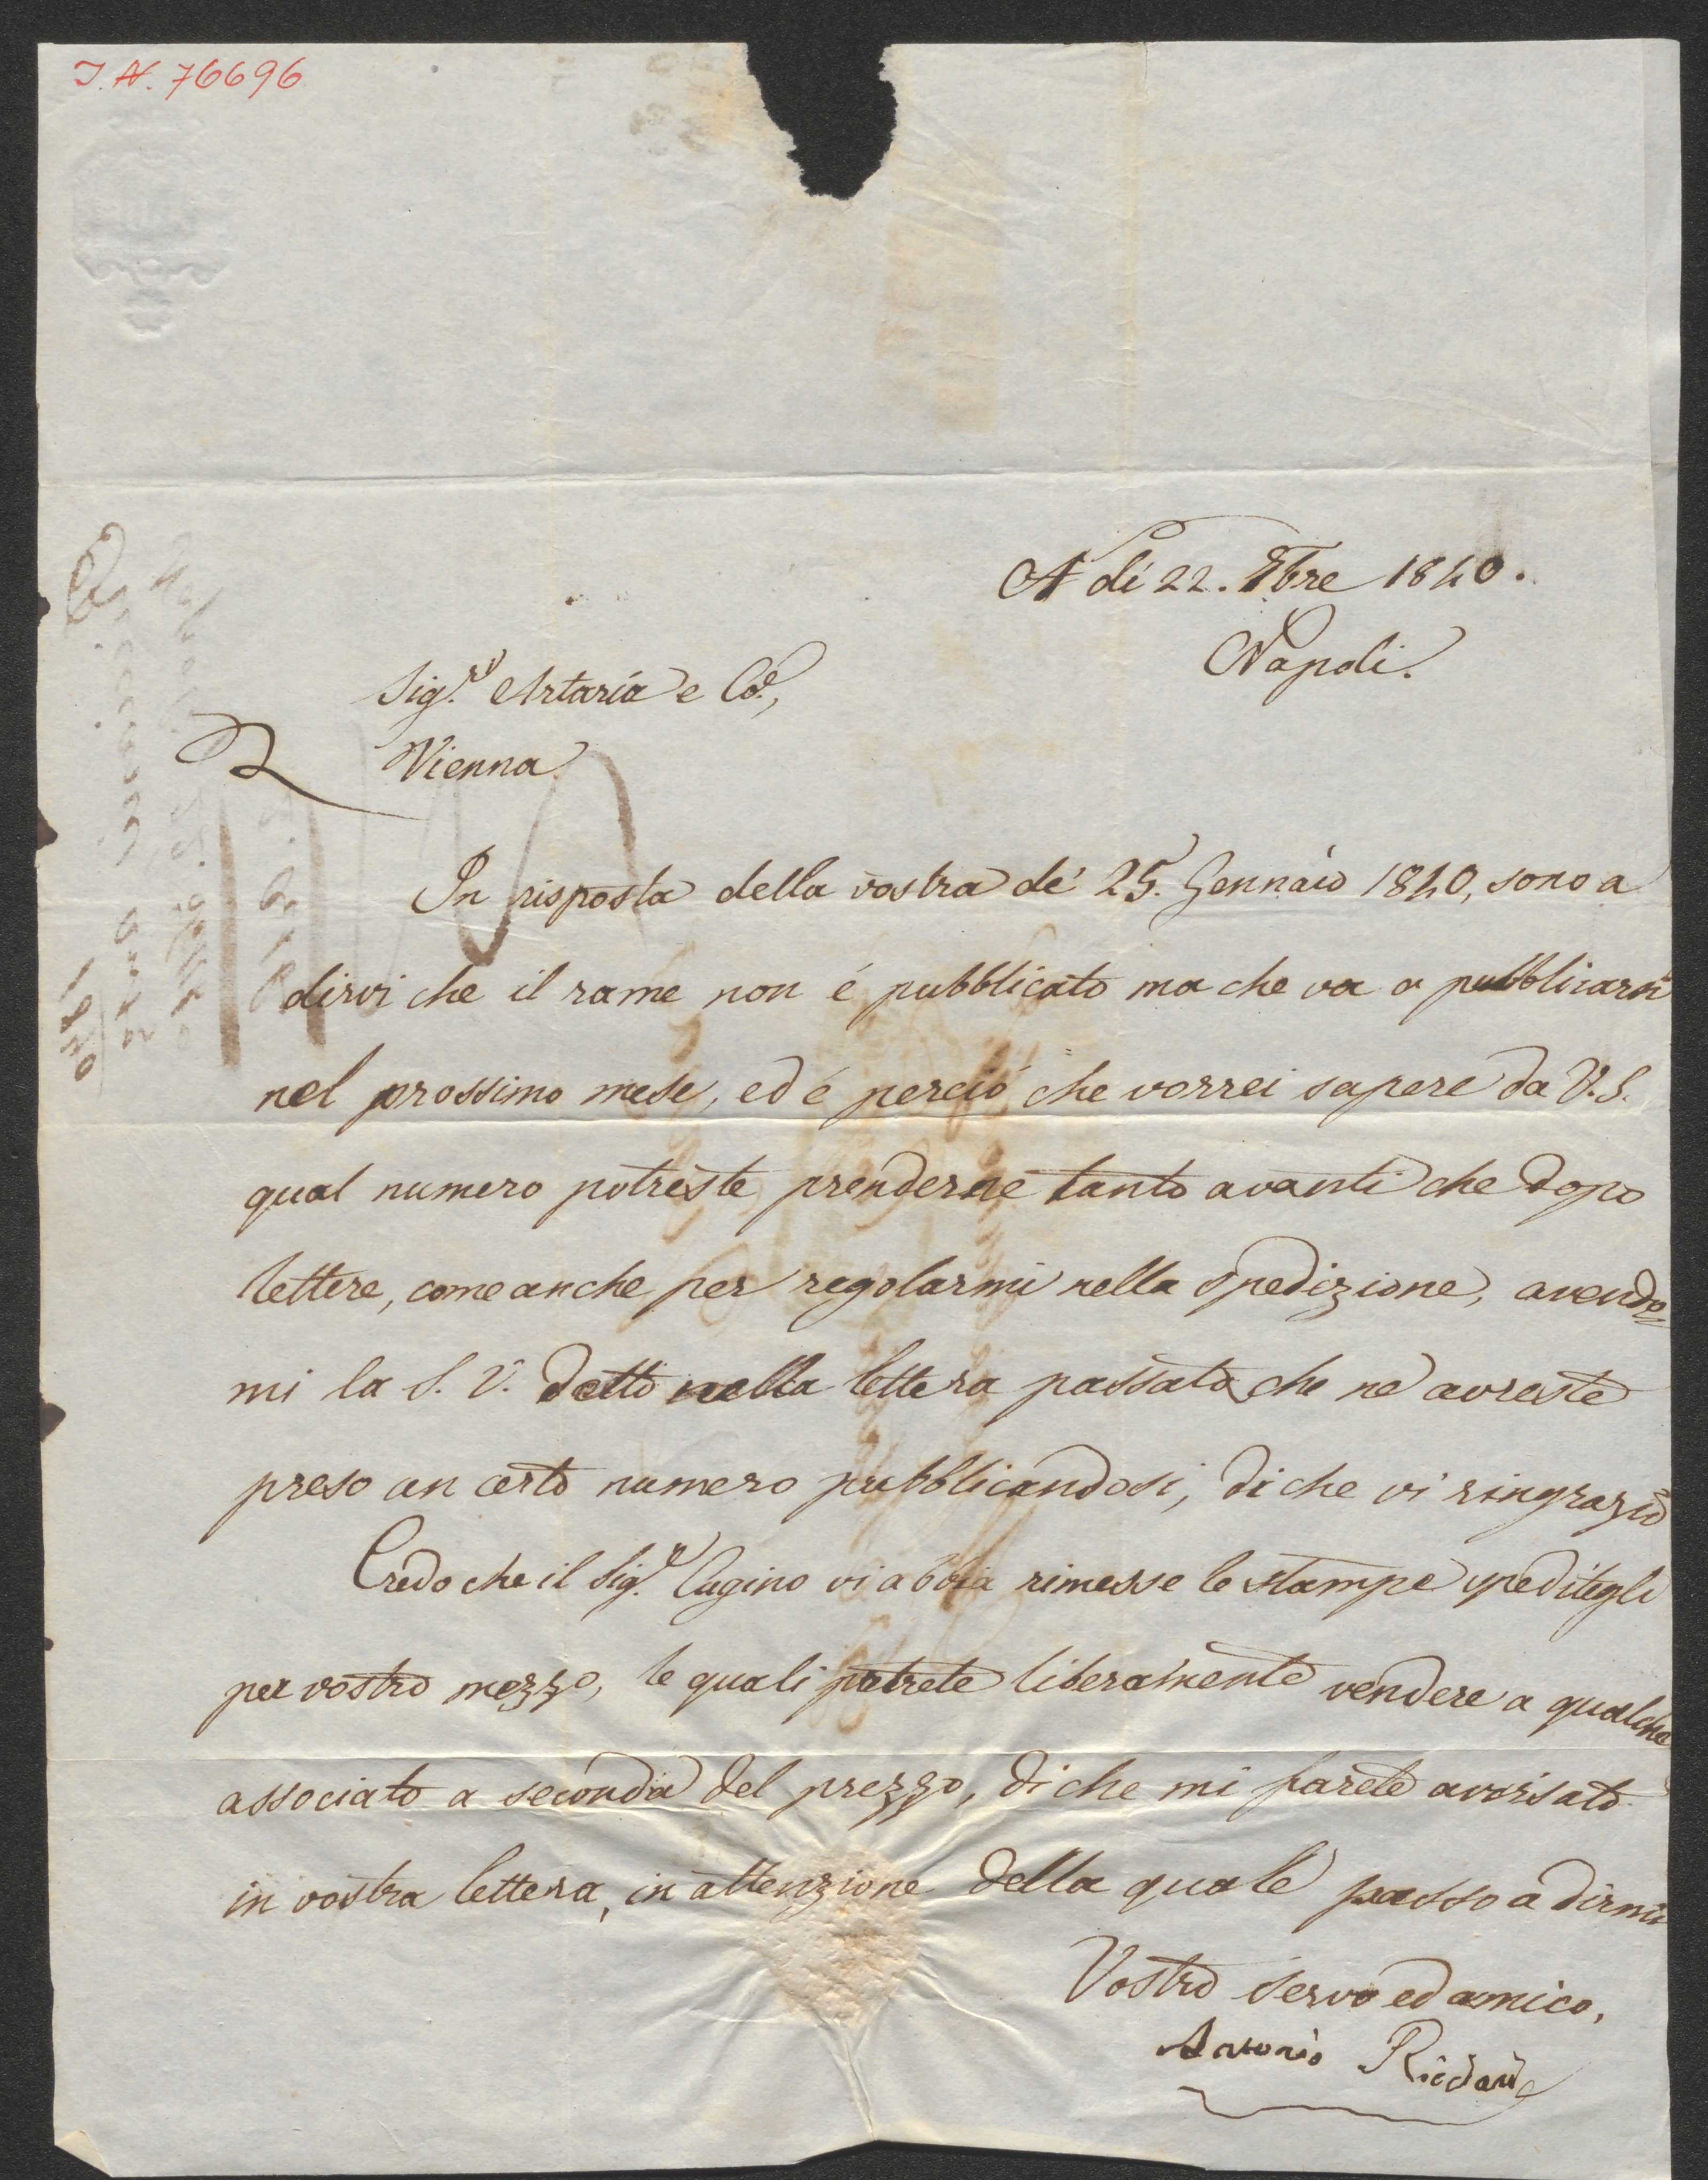 J.N. 76696
A dì 22. 8bre 1840.
Napoli.
Sig.ri Artaria e Co.,
Vienna
In risposta della vostra de' 25. Gennaio 1840, sono a
dirvi che il rame non é pubblicato ma che va a pubblicarsi
nel prossimo mese, ed é perció che vorrei sapere da V.S.
qual numero potreste prenderne tanto avanti che dopo
lettere, come anche per regolarmi nella spedizione, avendo=
mi la S. V. detto nella lettera passata che ne avreste
preso un certo numero pubblicandosi, di che vi ringrazio
Credo che il Sig.r Cugino vi abbia rimesse le stampe speditegli
per vostro mezzo, le quali potrete liberamente vendere a qualche
associato a seconda del prezzo, di che mi farete avvisato
in vostra lettera, in attenzione della quale passo a dirmi
Vostro servo ed amico,
Antonio